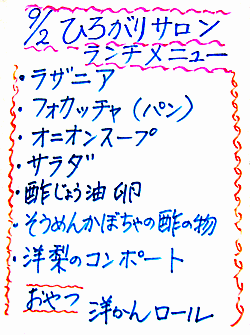 9/2 ひろがりサロン
ランチメニュー
・ラザニア
・フォカッチャ（パン）
・オニオンスープ
・サラダ
・酢じょう油卵
・そうめんかぼちゃの酢の物
・洋梨のコンポート
おやつ 洋かんロール